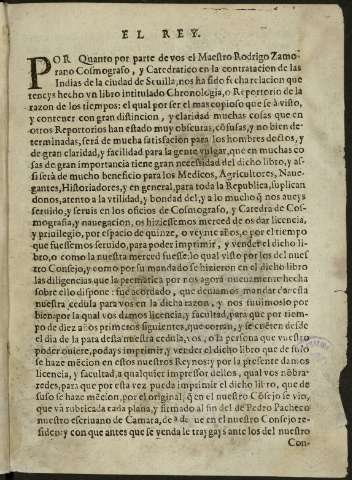 EL REY.
POR Quanto por parte de vos el Maestro Rodrigo Zamo-
rano Cosmografo, y Catredatico en la contratacion de las
Indias de la ciudad de Seuilla, nos ha sido fecha relacion que
teneys hecho vn libro intitulado Chronologia, o Reportorio de la
razon de los tiempos: el qual por ser el mas copioso que se à visto,
y contener con gran distincion, y claridad muchas cosas que en
otros Reportorios han estado muy obscuras, cõfusas, y no bien de-
terminadas, serà de mucha satisfacion para los hombres doctos, y
de gran claridad, y facilidad para la gente vulgar, que en muchas co
sas de gran importancia tiene gran necessidad del dicho libro, y as-
si serà de mucho beneficio para los Medicos, Agricultores, Naue-
gantes, Historiadores, y en general, para toda la Republica, suplican
donos, atento a la vtilidad, y bondad del, y a lo mucho q̃ nos aueys
seruido, y seruis en los oficios de Cosmografo, y Catreda de Cos-
mografia, y nauegacion, os hiziessemos merced de os dar licencia,
y priuilegio, por espacio de quinze, o veynte años, o por el tiempo
que fuessemos seruido, para poder imprimir, y vender el dicho li-
bro, o como la nuestra merced fuesse: lo qual visto por los del nues
tro Consejo, y como por su mandado se hizieron en el dicho libro
las diligencias que la prematica por nos agora nueuamente hecha
sobre ello dispone: fue acordado, que deuiamos mandar dar esta
nuestra cedula para vos en la dicha razon, y nos tuuimoslo por
bien: por la qual vos damos licencia, y facultad, para que por tiem-
po de diez años primeros siguientes, que corran, y se cuẽten desde
el dia de la data desta nuestra cedula, vos, o la persona que vuestro
poder ouiere, podays imprimir, y vender el dicho libro que de suso
se haze mẽcion en estos nuestros Reynos: y por la presente damos
licencia, y facultad, a qualquier impressor dellos, qual vos nõbra-
redes, para que por esta vez pueda imprimir el dicho libro, que de
suso se haze mẽcion, por el original, q̃ en el nuestro Cõsejo se vio,
que va rubricada cada plana, y firmado al fin del de Pedro Pacheco
nuestro escriuano de Camara, de los que en el nuestro Consejo re-
siden: y con que antes que se venda le traygays ante los del nuestro
Con-